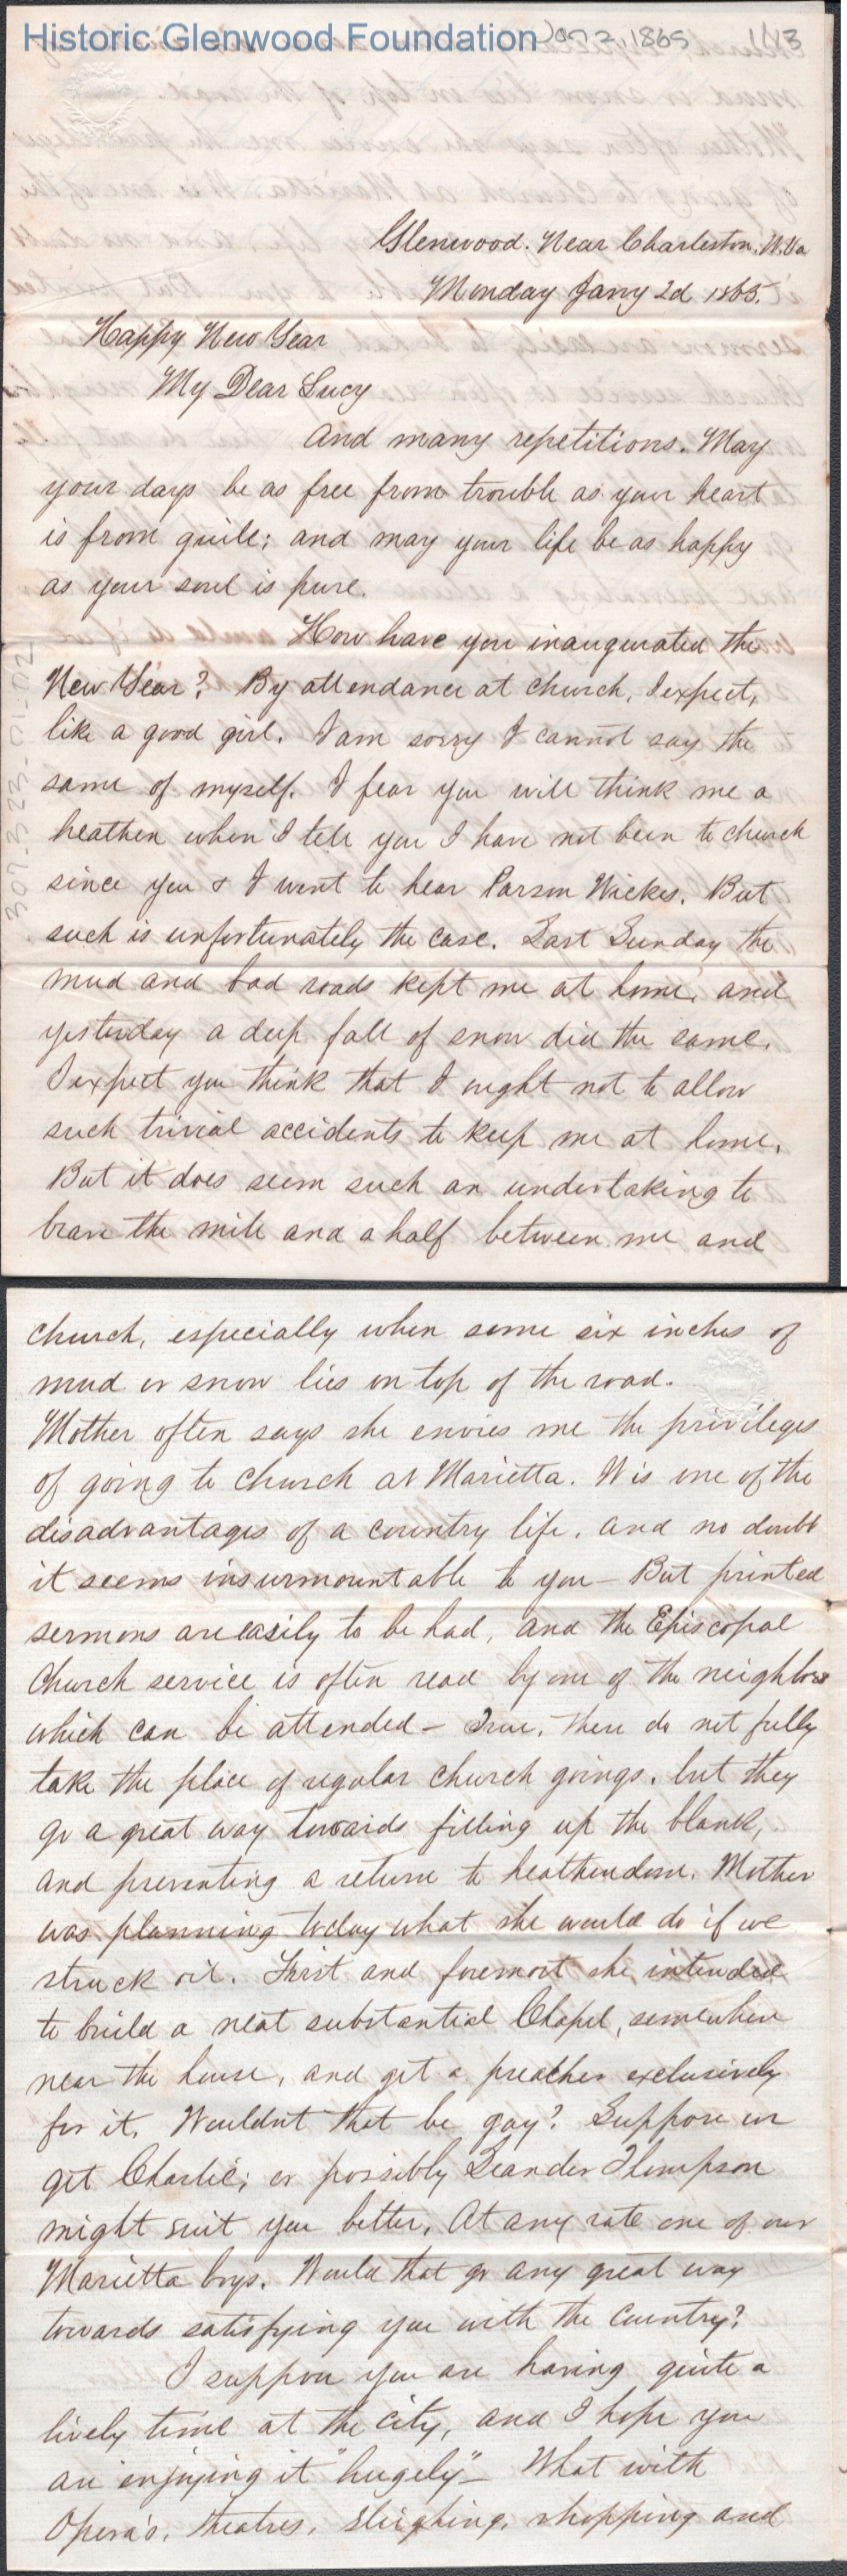 Historic Glenwood Foundation Jan 2, 1865 1113
Glenwood. Near Charleston, W.Va
Monday Jany 2d 1865.
Happy New Year
My Dear Lucy
And many repetitions. May
your days be as free from trouble as your heart
is from guile; and may your life be as happy
as your soul is pure.
How have you inaugurated the
New Year? By attendance at church, I expect,
like a good girl. I am sorry I cannot say the
same of myself. I fear you will think me a
heathen when I tell you I have not been to church
since you & I went to hear Parson Wickes. But
such is unfortunately the case. Last Sunday the
mud and bad roads kept me at home, and
yesterday a deep fall of snow did the same.
I expect you think that I ought not to allow
such trivial accidents to keep me at home.
But it does seem such an undertaking to
brave the mile and a half between me and
307.323-01-02
church, especially when some six inches of
mud or snow lies on top of the road.
Mother often says she envies me the privileges
of going to church at Marietta. It is one of the
disadvantages of a country life, and no doubt
it seems insurmountable to you – But printed
sermons are easily to be had, and the Episcopal
Church service is often read by one of the neighbors
which can be attended – True, these do not fully
take the place of regular church goings, but they
go a great way towards filling up the blank,
and preventing a return to heathendom. Mother
was planning today what she would do if we
struck oil. First and foremost she intended
to build a neat substantial Chapel, somewhere
near the house, and get a preacher exclusively
for it. Wouldn't that be gay? Suppose we
get Charlie; or possibly Leander Thompson
might suit you better. At any rate one of our
Marietta boys. Would that go any great way
towards satisfying you with the country?
I suppose you are having quite a
lively time at the city, and I hope you
are enjoying it "hugely" – What with
Opera's, theatres, sleighing, shopping and